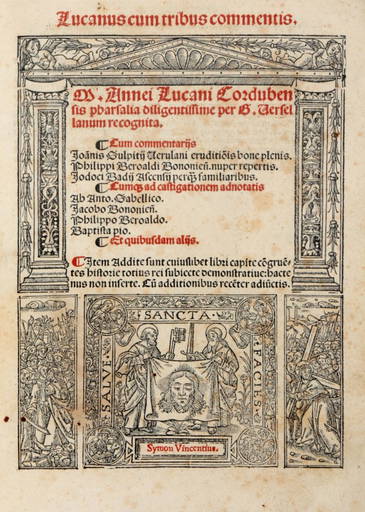 Lucanus cum tribus commentis.
M. Annei Lucani Corduben
sis pharsalia diligentissime per G. Versel
lanum recognita.
¶ Cum commentarijs
Joãnis Sulpitij Verulani eruditiõis bone plenis.
Philippi Beroaldi Bononieñ. nuper repertis.
Jodoci Badij Ascensij perq̃ familiaribus.
¶ Cumq; ad castigationem adnotatis
Ab Anto. Sabellico.
Jacobo Bononieñ.
Philippo Beroaldo.
Baptista pio.
¶ Et quibusdam alijs.
¶ Item Addite sunt cuiuslibet libri capite cõgruẽ-
tes historie totius rei subiecte demonstratiue: hacte
nus non inserte. Cũ additionibus recẽter adiũctis.
SALVE SANCTA FACIES
Symon Vincentius.